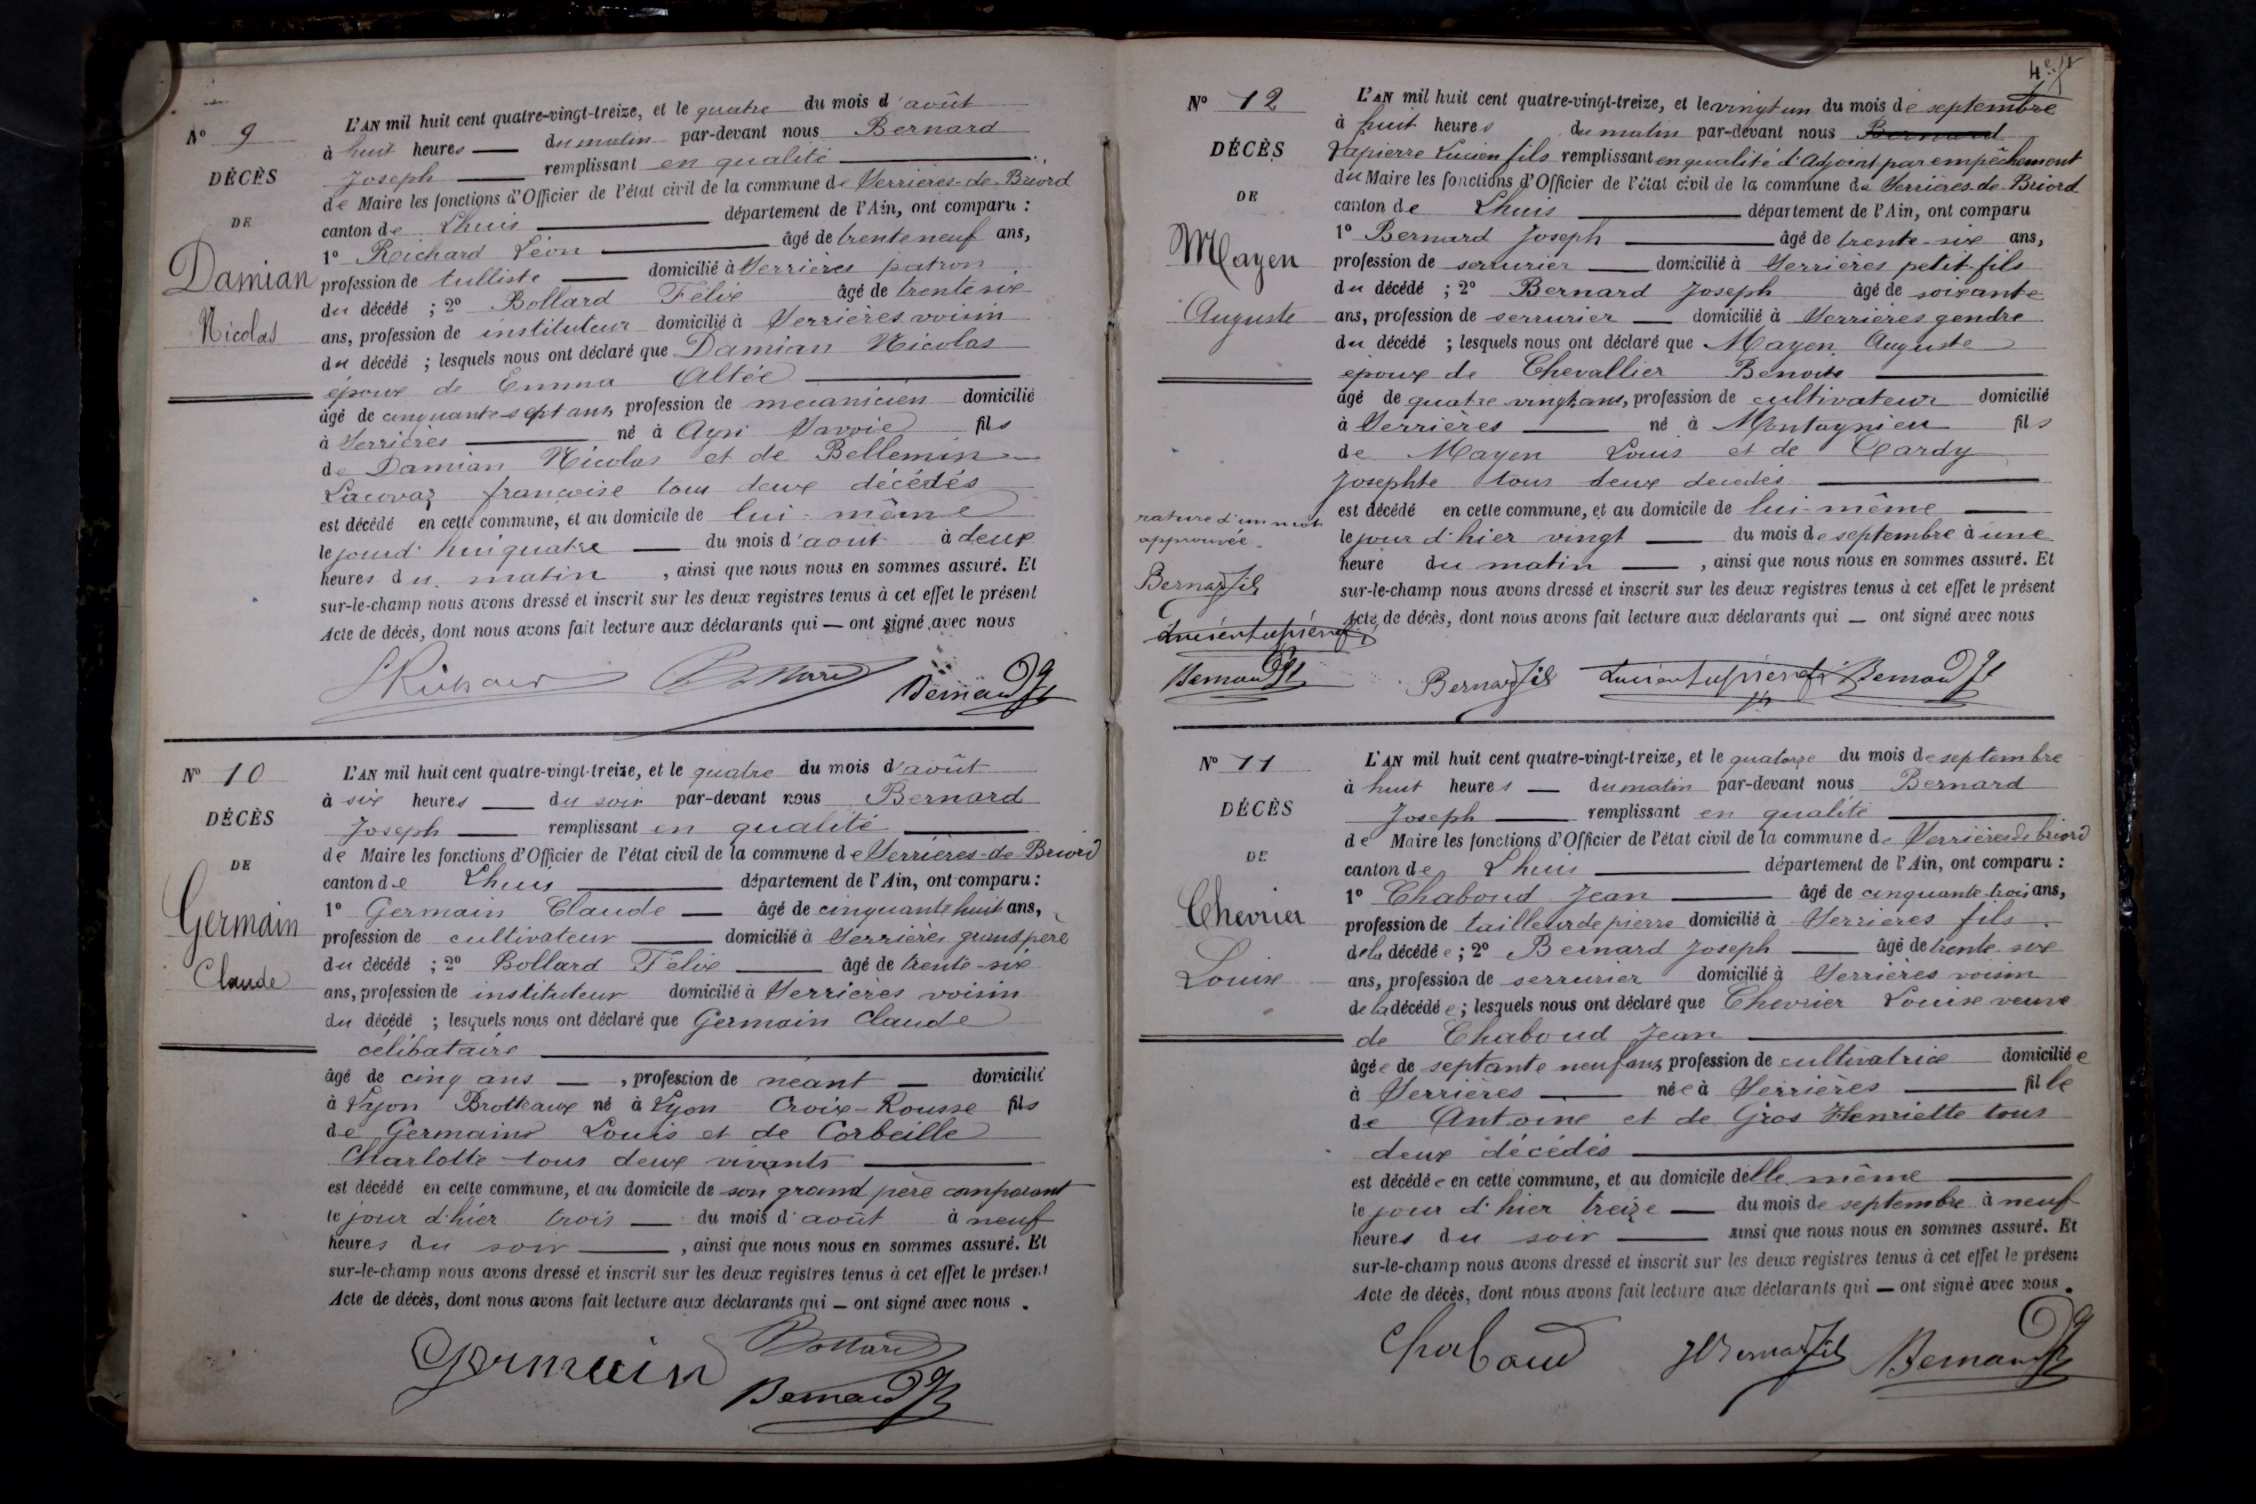 N° 9
DÉCÈS
DE
Damian
Nicolas
L'AN mil huit cent quatre-vingt-treize, et le quatre du mois d'août
à huit heures du matin par-devant nous Bernard
Joseph remplissant en qualité
de Maire les fonctions d'Officier de l'état civil de la commune de Serrières-de-Briord
canton de Lhuis département de l'Ain, ont comparu :
1° Richard Léon âgé de trente neuf ans,
profession de tulliste domicilié à Serrières patron
du décédé ; 2° Bollard Félix âgé de trente six
ans, profession de instituteur domicilié à Serrières voisin
du décédé ; lesquels nous ont déclaré que Damian Nicolas
époux de Emma Altée
âgé de cinquante sept ans, profession de mécanicien domicilié
à Serrières né à Ayn Savoie fils
de Damian Nicolas et de Bellemin
françoise tous deux décédés
est décédé en cette commune, et au domicile de lui-même
le jourd'hui quatre du mois d'août à deux
heures du matin , ainsi que nous nous en sommes assuré. Et
sur-le-champ nous avons dressé et inscrit sur les deux registres tenus à cet effet le présent
Acte de décès, dont nous avons fait lecture aux déclarants qui — ont signé avec nous
LRichard Bollard Bernard
N° 10
DÉCÈS
DE
Germain
Claude
L'AN mil huit cent quatre-vingt-treize, et le quatre du mois d'août
à six heures du soir par-devant nous Bernard
Joseph remplissant en qualité
de Maire les fonctions d'Officier de l'état civil de la commune de Serrières-de-Briord
canton de Lhuis département de l'Ain, ont comparu :
1° Germain Claude âgé de cinquante huit ans,
profession de cultivateur domicilié à Serrières grand père
du décédé ; 2° Bollard Félix âgé de trente-six
ans, profession de instituteur domicilié à Serrières voisin
du décédé ; lesquels nous ont déclaré que Germain Claude
célibataire
âgé de cinq ans , profession de néant domicilié
à Lyon Brotteaux né à Lyon Croix-Rousse fils
de Germain Louis et de Corbeille
Charlotte tous deux vivants
est décédé en cette commune, et au domicile de son grand père comparant
le jour d'hier trois du mois d'août à neuf
heures du soir , ainsi que nous nous en sommes assuré. Et
sur-le-champ nous avons dressé et inscrit sur les deux registres tenus à cet effet le présent
Acte de décès, dont nous avons fait lecture aux déclarants qui — ont signé avec nous .
Germain Bollard
Bernard
N° 12
DÉCÈS
DE
Mayen
Auguste
L'AN mil huit cent quatre-vingt-treize, et le vingt un du mois de septembre
à huit heures du matin par-devant nous Bernard
Lapierre Lucien fils remplissant en qualité d'Adjoint par empêchement
du Maire les fonctions d'Officier de l'état civil de la commune de Serrières-de-Briord
canton de Lhuis département de l'Ain, ont comparu
1° Bernard Joseph âgé de trente-six ans,
profession de serrurier domicilié à Serrières petit-fils
du décédé ; 2° Bernard Joseph âgé de soixante
ans, profession de serrurier domicilié à Serrières gendre
du décédé ; lesquels nous ont déclaré que Mayen Auguste
époux de Chevallier Benoite
âgé de quatre vingt ans, profession de cultivateur domicilié
à Serrières né à Montagnieu fils
de Mayen Louis et de Cardy
Josephte tous deux décédés
est décédé en cette commune, et au domicile de lui-même
le jour d'hier vingt du mois de septembre à une
heure du matin , ainsi que nous nous en sommes assuré. Et
sur-le-champ nous avons dressé et inscrit sur les deux registres tenus à cet effet le présent
Acte de décès, dont nous avons fait lecture aux déclarants qui — ont signé avec nous
rature d'un mot
approuvée.
Bernard fils
Lucien Lapierre f
Bernard
Bernard fils Lucien Lapierre f Bernard
N° 11
DÉCÈS
DE
Chevrier
Louise
L'AN mil huit cent quatre-vingt-treize, et le quatorze du mois de septembre
à huit heures du matin par-devant nous Bernard
Joseph remplissant en qualité
de Maire les fonctions d'Officier de l'état civil de la commune de Serrières de briord
canton de Lhuis département de l'Ain, ont comparu :
1° Chaboud Jean âgé de cinquante-trois ans,
profession de tailleur de pierre domicilié à Serrières fils
de la décédée ; 2° Bernard Joseph âgé de trente six
ans, profession de serrurier domicilié à Serrières voisin
de la décédée ; lesquels nous ont déclaré que Chevrier Louise veuve
de Chaboud Jean
âgée de septante neuf ans, profession de cultivatrice domiciliée
à Serrières née à Serrières fille
de Antoine et de Gros Henriette tous
deux décédés
est décédée en cette commune, et au domicile d'elle même
le jour d'hier treize du mois de septembre à neuf
heures du soir ainsi que nous nous en sommes assuré. Et
sur-le-champ nous avons dressé et inscrit sur les deux registres tenus à cet effet le présent
Acte de décès, dont nous avons fait lecture aux déclarants qui — ont signé avec nous .
Chaboud JBernard fils Bernard